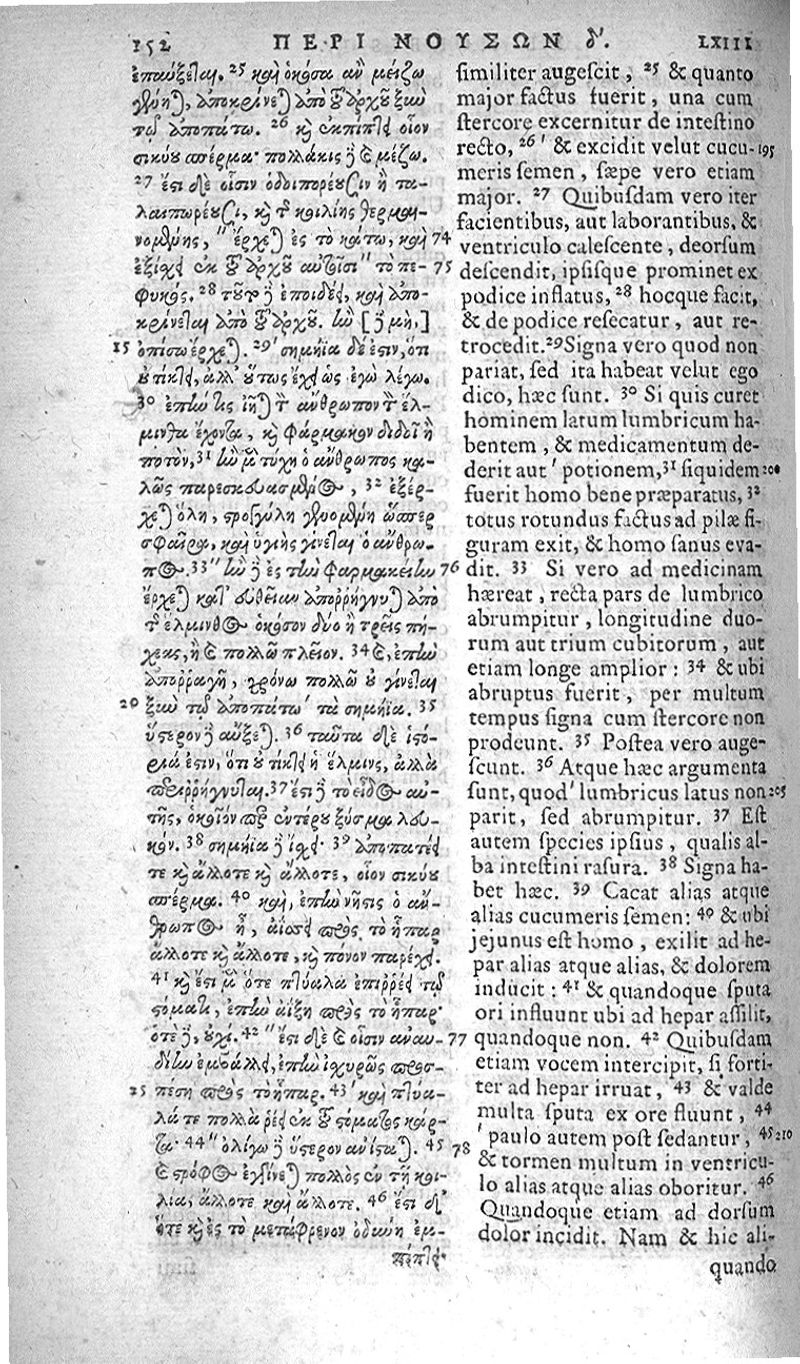 152 ΠΕΡΙ ΝΟΥΣΩΝ δ'. LXIII
ἐπαύξεται. 25 καὶ ὁκόσα ἂν μείζω
γένηται, ἀποκρίνεται ἀπὸ τοῦ ἀρχοῦ ξὺν
τῷ ἀποπάτῳ. 26 καὶ ἐκπίπτει οἷον
σικύου σπέρμα· πολλάκις δὲ καὶ μέζω.
27 ἔστι δὲ οἷσιν ὁδοιπορέουσιν ἢ τα-
λαιπωρέουσι, καὶ τῆς κοιλίης θερμαι-
νομένης, " ἔρχεται ἐς τὸ κάτω, καὶ 74
ἐξίσχει ἐκ τοῦ ἀρχοῦ αὐτοῖσι " τὸ πε- 75
φυκός. 28 τοῦτο δὲ ἐποιδέει, καὶ ἀπο-
κρίνεται ἀπὸ τοῦ ἀρχοῦ. ἢν [δὲ μὴ,]
15 ὀπίσω ἔρχεται. 29 ' σημήϊα δέ ἐστιν, ὅτι
οὐ τίκτει, ἀλλ' οὕτως ἔχει ὡς ἐγὼ λέγω.
30 ἐπὴν τις ἰῆται τὸν ἄνθρωπον τὸν ἕλ-
μινθα ἔχοντα, καὶ φάρμακον διδοῖ ἢ
ποτὸν, 31 ἢν μὲν τύχῃ ὁ ἄνθρωπος κα-
λῶς παρεσκευασμένος, 32 ἐξέρ-
χεται ὅλη, στρογγύλη γενομένη ὥσπερ
σφαῖρα, καὶ ὑγιὴς γίνεται ὁ ἄνθρω-
πος. 33 " ἢν δὲ ἐς τὴν φαρμακείην 76
ἔρχεται κατ' εὐθεῖαν ἀπορρήγνυται ἀπὸ
τῆς ἕλμινθος ὁκόσον δύο ἢ τρεῖς πή-
χεις, ἢ καὶ πολλῷ πλεῖον. 34 καὶ, ἐπὴν
ἀπορραγῇ, χρόνῳ πολλῷ οὐ γίνεται
20 ξὺν τῷ ἀποπάτῳ ' τὰ σημήϊα. 35
ὕστερον δὲ αὔξεται. 36 ταῦτα δὲ ἱστό-
ριά ἐστιν, ὅτι οὐ τίκτει ἡ ἕλμινς, ἀλλὰ
περιρρήγνυται. 37 ἔστι δὲ τὸ εἶδος αὐ-
τῆς, ὁκοῖον περ ἐντέρου ξύσμα λευ-
κόν. 38 σημήϊα δὲ ἴσχει· 39 ἀποπατέει
τε καὶ ἄλλοτε καὶ ἄλλοτε, οἷον σικύου
σπέρμα. 40 καὶ, ἐπὴν νῆστις ὁ ἄν-
θρωπος ᾖ, ἀΐσσει πρὸς τὸ ἧπαρ
ἄλλοτε καὶ ἄλλοτε, καὶ πόνον παρέχει.
41 καὶ ἔστι μὲν ὅτε πτύαλα ἐπιρρέει τῷ
στόματι, ἐπὴν ἀΐξῃ πρὸς τὸ ἧπαρ·
ὁτὲ δὲ, οὐχί. 42 " ἔστι δὲ καὶ οἷσιν ἀναυ- 77
δίην ἐμβάλλει, ἐπὴν ἰσχυρῶς προσ-
25 πέσῃ πρὸς τὸ ἧπαρ. 43 ' καὶ πτύα-
λά τε πολλὰ ῥέει ἐκ τοῦ στόματος κάρ-
τα· 44 " ὀλίγῳ δὲ ὕστερον ἀνίσταται. 45 78
καὶ στρόφος ἐγγίνεται πολλὸς ἐν τῇ κοι-
λίᾳ, ἄλλοτε καὶ ἄλλοτε. 46 ἔστι δ'
ὅτε καὶ ἐς τὸ μετάφρενον ὀδύνη ἐμ-
πίπτει·
similiter augescit, 25 & quanto
major factus fuerit, una cum
stercore excernitur de intestino
recto, 26 ' & excidit velut cucu- 195
meris semen, sæpe vero etiam
major. 27 Quibusdam vero iter
facientibus, aut laborantibus, &
ventriculo calescente, deorsum
descendit, ipsisque prominet ex
podice inflatus, 28 hocque facit,
& de podice resecatur, aut re-
trocedit. 29 Signa vero quod non
pariat, sed ita habeat velut ego
dico, hæc sunt. 30 Si quis curet
hominem latum lumbricum ha-
bentem, & medicamentum de-
derit aut ' potionem, 31 siquidem 200
fuerit homo bene præparatus, 32
totus rotundus factus ad pilæ fi-
guram exit, & homo sanus eva-
dit. 33 Si vero ad medicinam
hæreat, recta pars de lumbrico
abrumpitur, longitudine duo-
rum aut trium cubitorum, aut
etiam longe amplior: 34 & ubi
abruptus fuerit, per multum
tempus signa cum stercore non
prodeunt. 35 Postea vero auge-
scunt. 36 Atque hæc argumenta
sunt, quod ' lumbricus latus non 205
parit, sed abrumpitur. 37 Est
autem species ipsius, qualis al-
ba intestini rasura. 38 Signa ha-
bet hæc. 39 Cacat alias atque
alias cucumeris semen: 40 & ubi
jejunus est homo, exilit ad he-
par alias atque alias, & dolorem
inducit: 41 & quandoque sputa
ori influunt ubi ad hepar assilit,
quandoque non. 42 Quibusdam
etiam vocem intercipit, si forti-
ter ad hepar irruat, 43 & valde
multa sputa ex ore fluunt, 44
' paulo autem post sedantur, 45 210
& tormen multum in ventricu-
lo alias atque alias oboritur. 46
Quandoque etiam ad dorsum
dolor incidit. Nam & hic ali-
quando